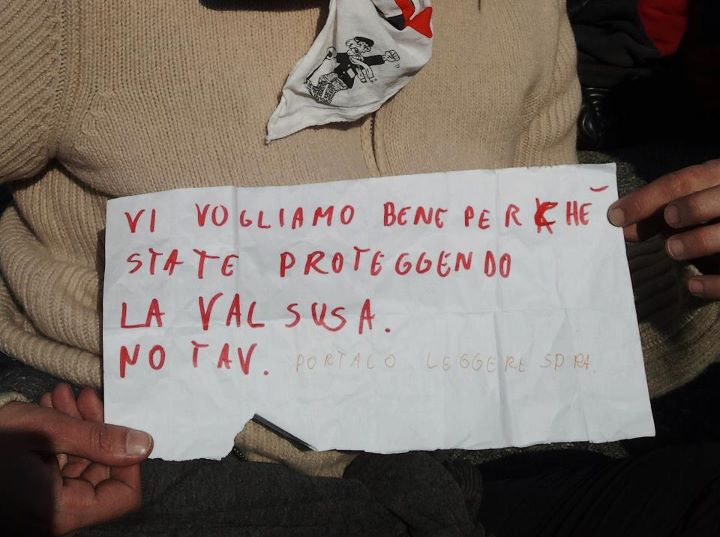 VI VOGLIAMO BENE PERCHĒ
STATE PROTEGGENDO
LA VAL SUSA.
NO TAV. PORTALO LEGGERE SOPRA.